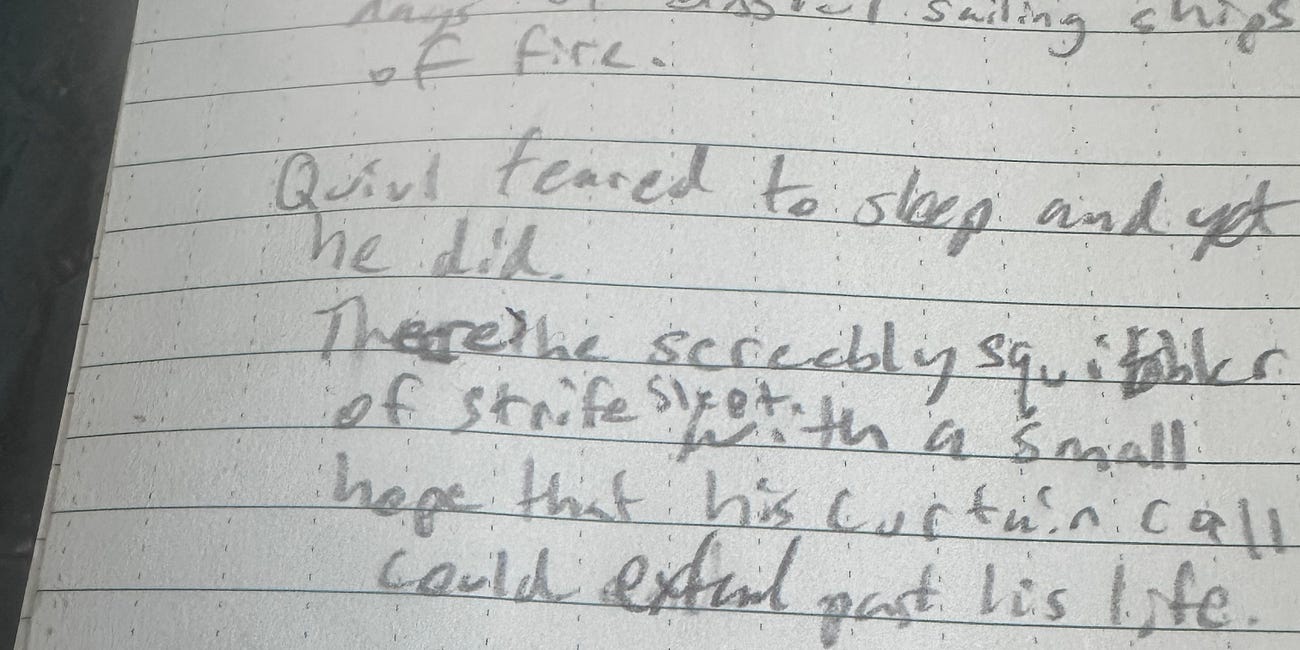 days of sailing ships
of fire.
Quivl feared to sleep and yet
he did.
There the screebly squibbles
of strife slept with a small
hope that his curtain call
could extend past his life.